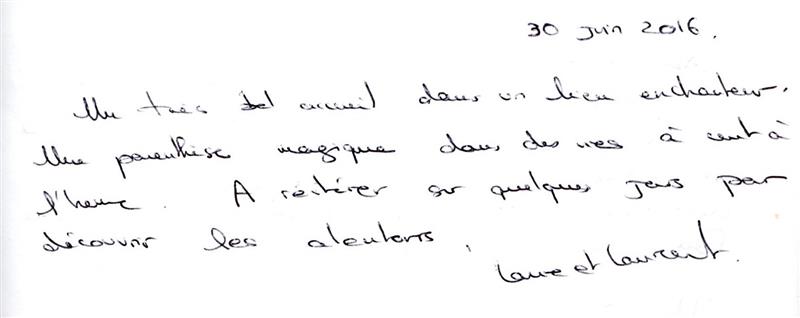 30 juin 2016.
Un très bel accueil dans un lieu enchanteur.
Une parenthèse magique dans des vies à cent à
l'heure. A réitérer sur quelques jours pour
découvrir les alentours.
Laure et Laurent.